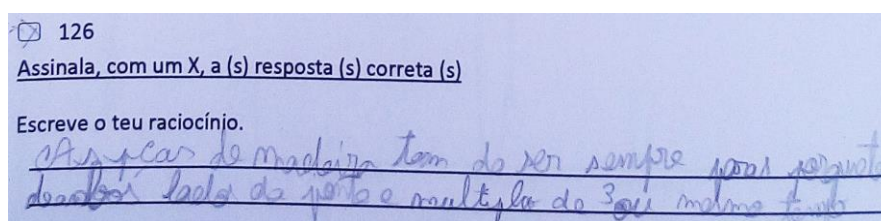 126
Assinala, com um X, a (s) resposta (s) correta (s)
Escreve o teu raciocínio.
As peças de madeira tem de ser sempre porque
lados da ponte e multiplo de 3 ou mesmo tempo